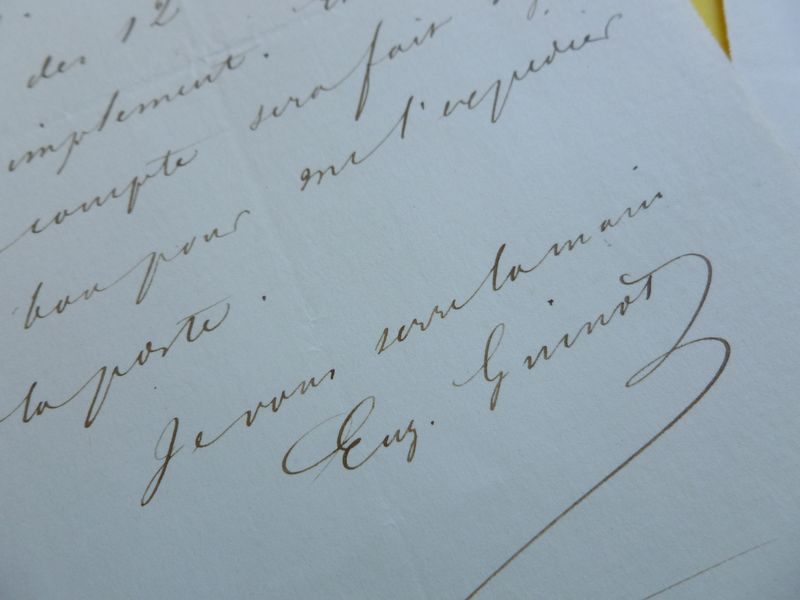 des 12
simplement.
compte sera fait
bon pour me l'expédier
la poste.
Je vous serre la main
Eug. Guinôt